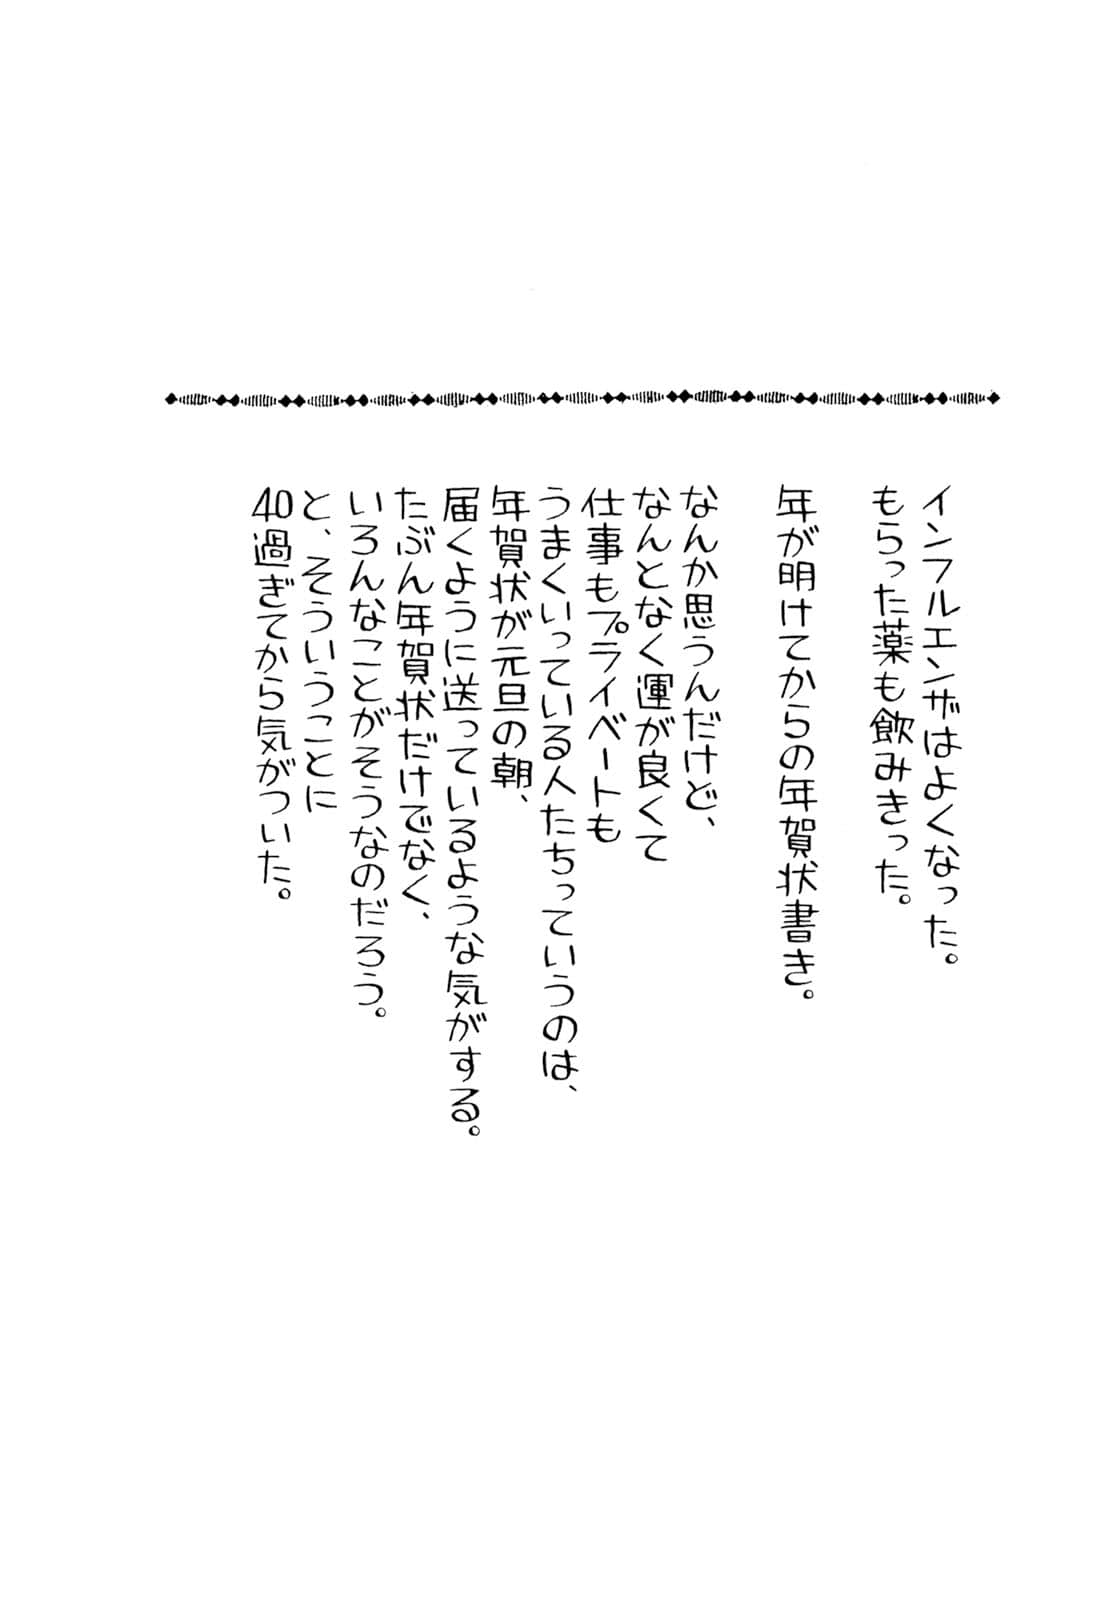 インフルエンザはよくなった。
もらった薬も飲みきった。
年が明けてからの年賀状書き。
なんか思うんだけど、
なんとなく運が良くて
仕事もプライベートも
うまくいっている人たちっていうのは、
年賀状が元旦の朝、
届くように送っているような気がする。
たぶん年賀状だけでなく、
いろんなことがそうなのだろう。
と、そういうことに
40過ぎてから気がついた。